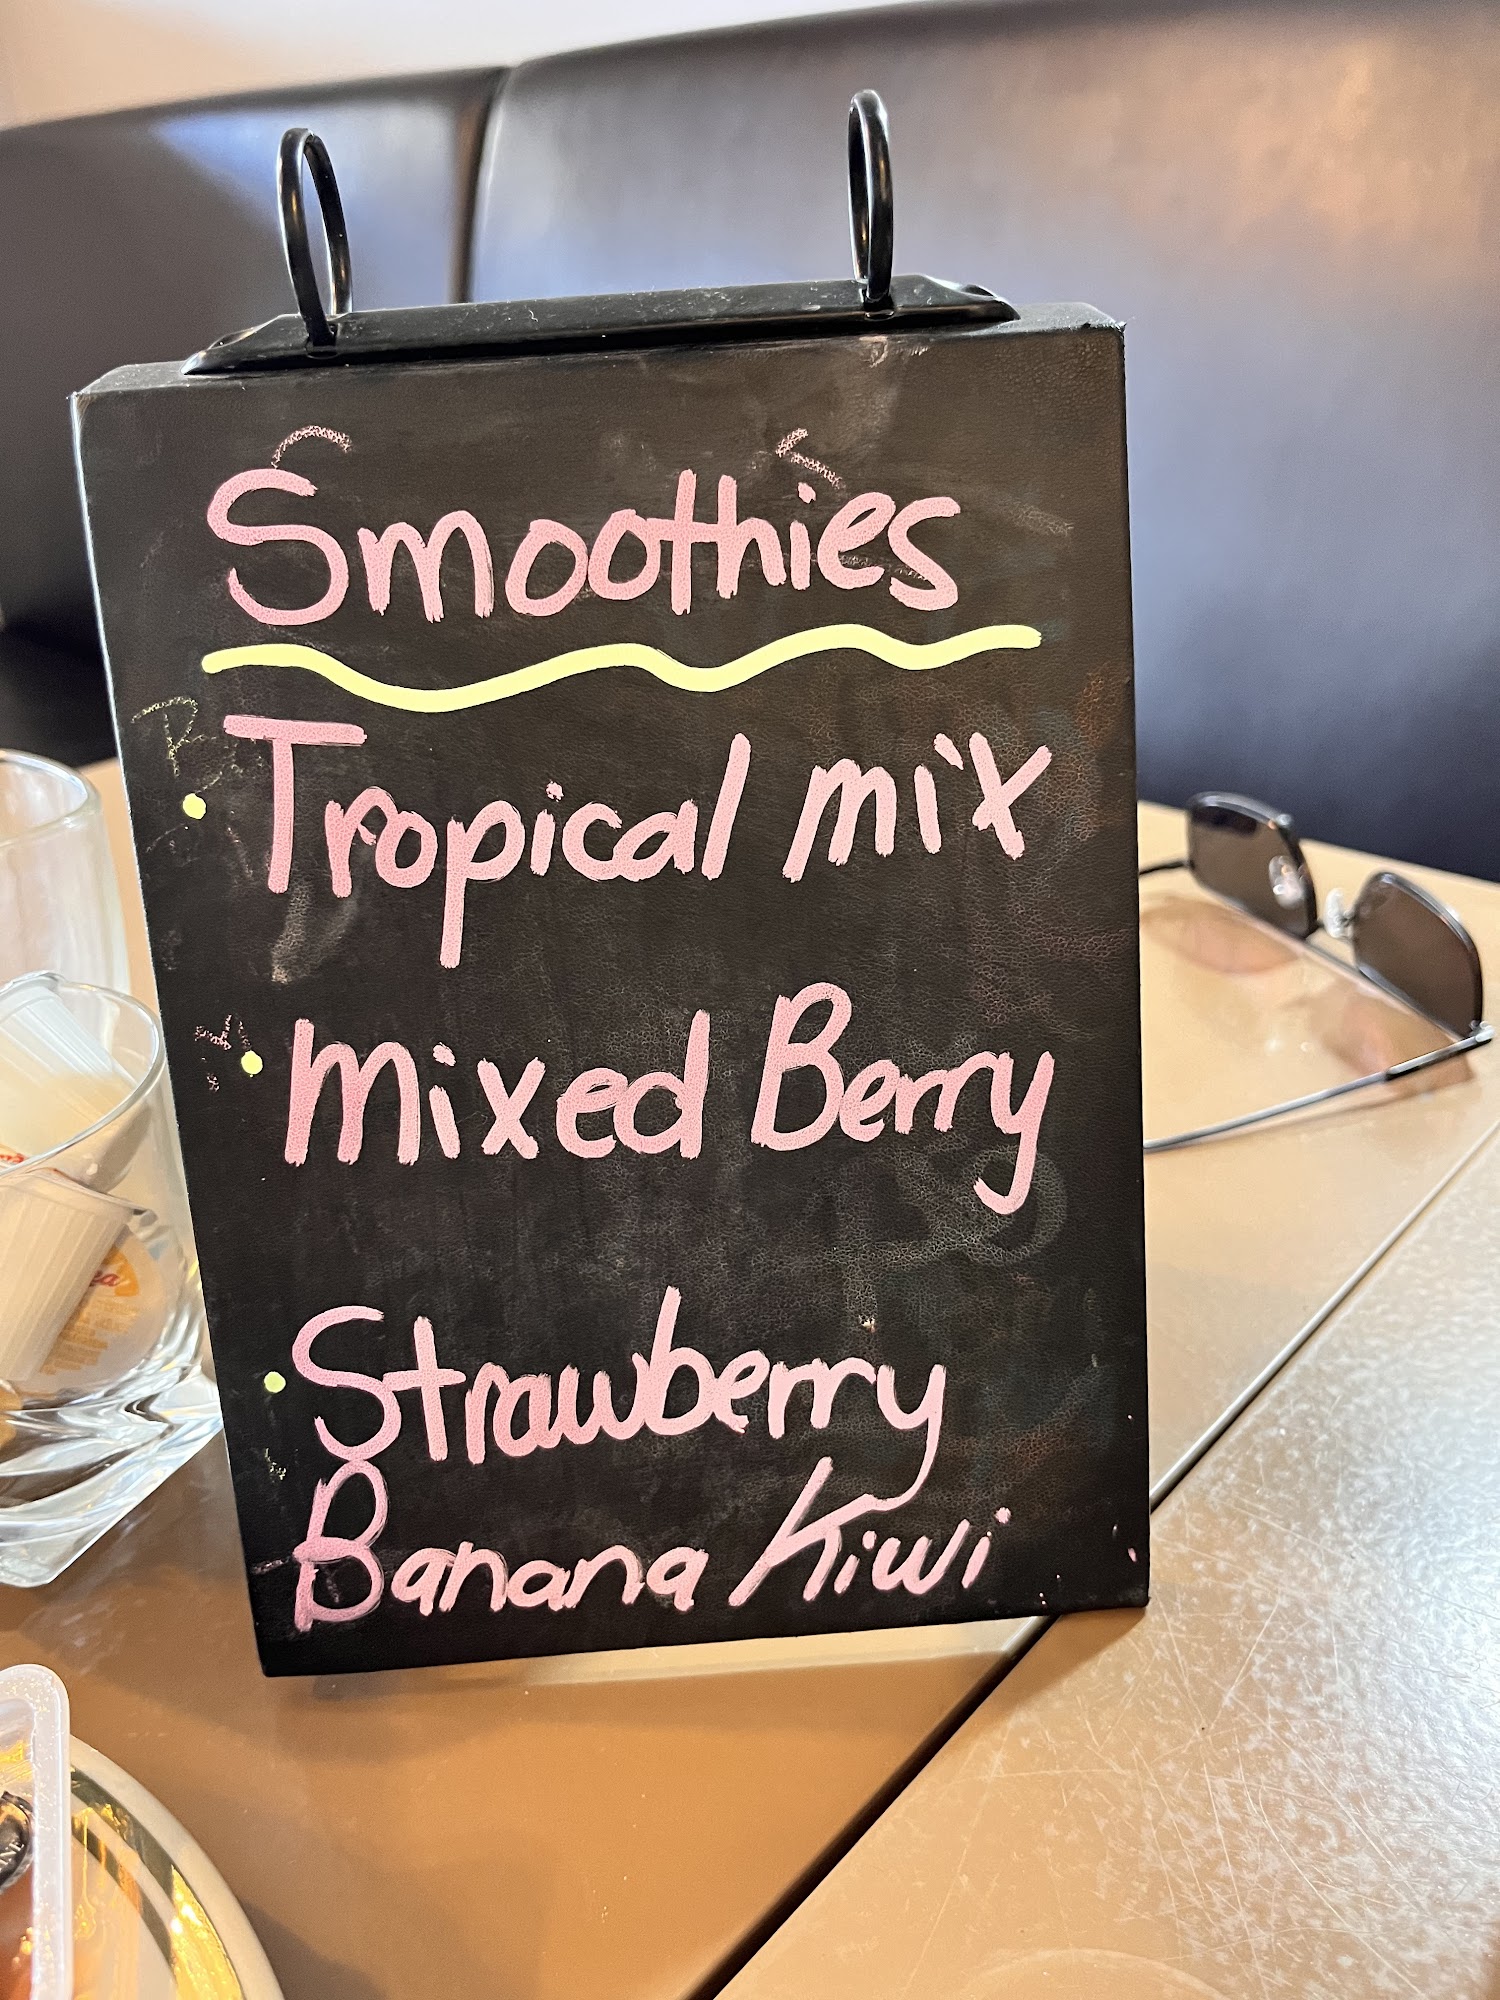 Smoothies
Tropical mix
Mixed Berry
Strawberry
Banana Kiwi